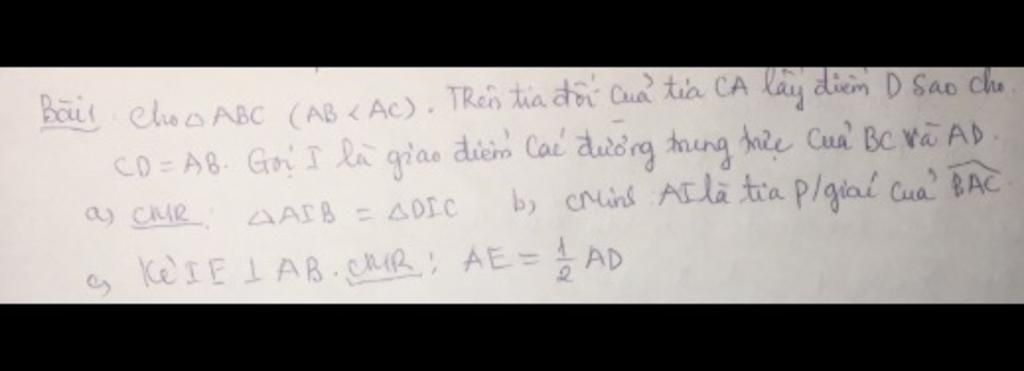 Bài 1 Cho △ABC (AB < AC). Trên tia đối của tia CA lấy điểm D sao cho
CD = AB. Gọi I là giao điểm các đường trung trực của BC và AD.
a) CMR: △AIB = △DIC b) CMinh AI là tia p/giác của \widehat{BAC}
c) Kẻ IE ⊥ AB. CMR: AE = \frac{1}{2} AD